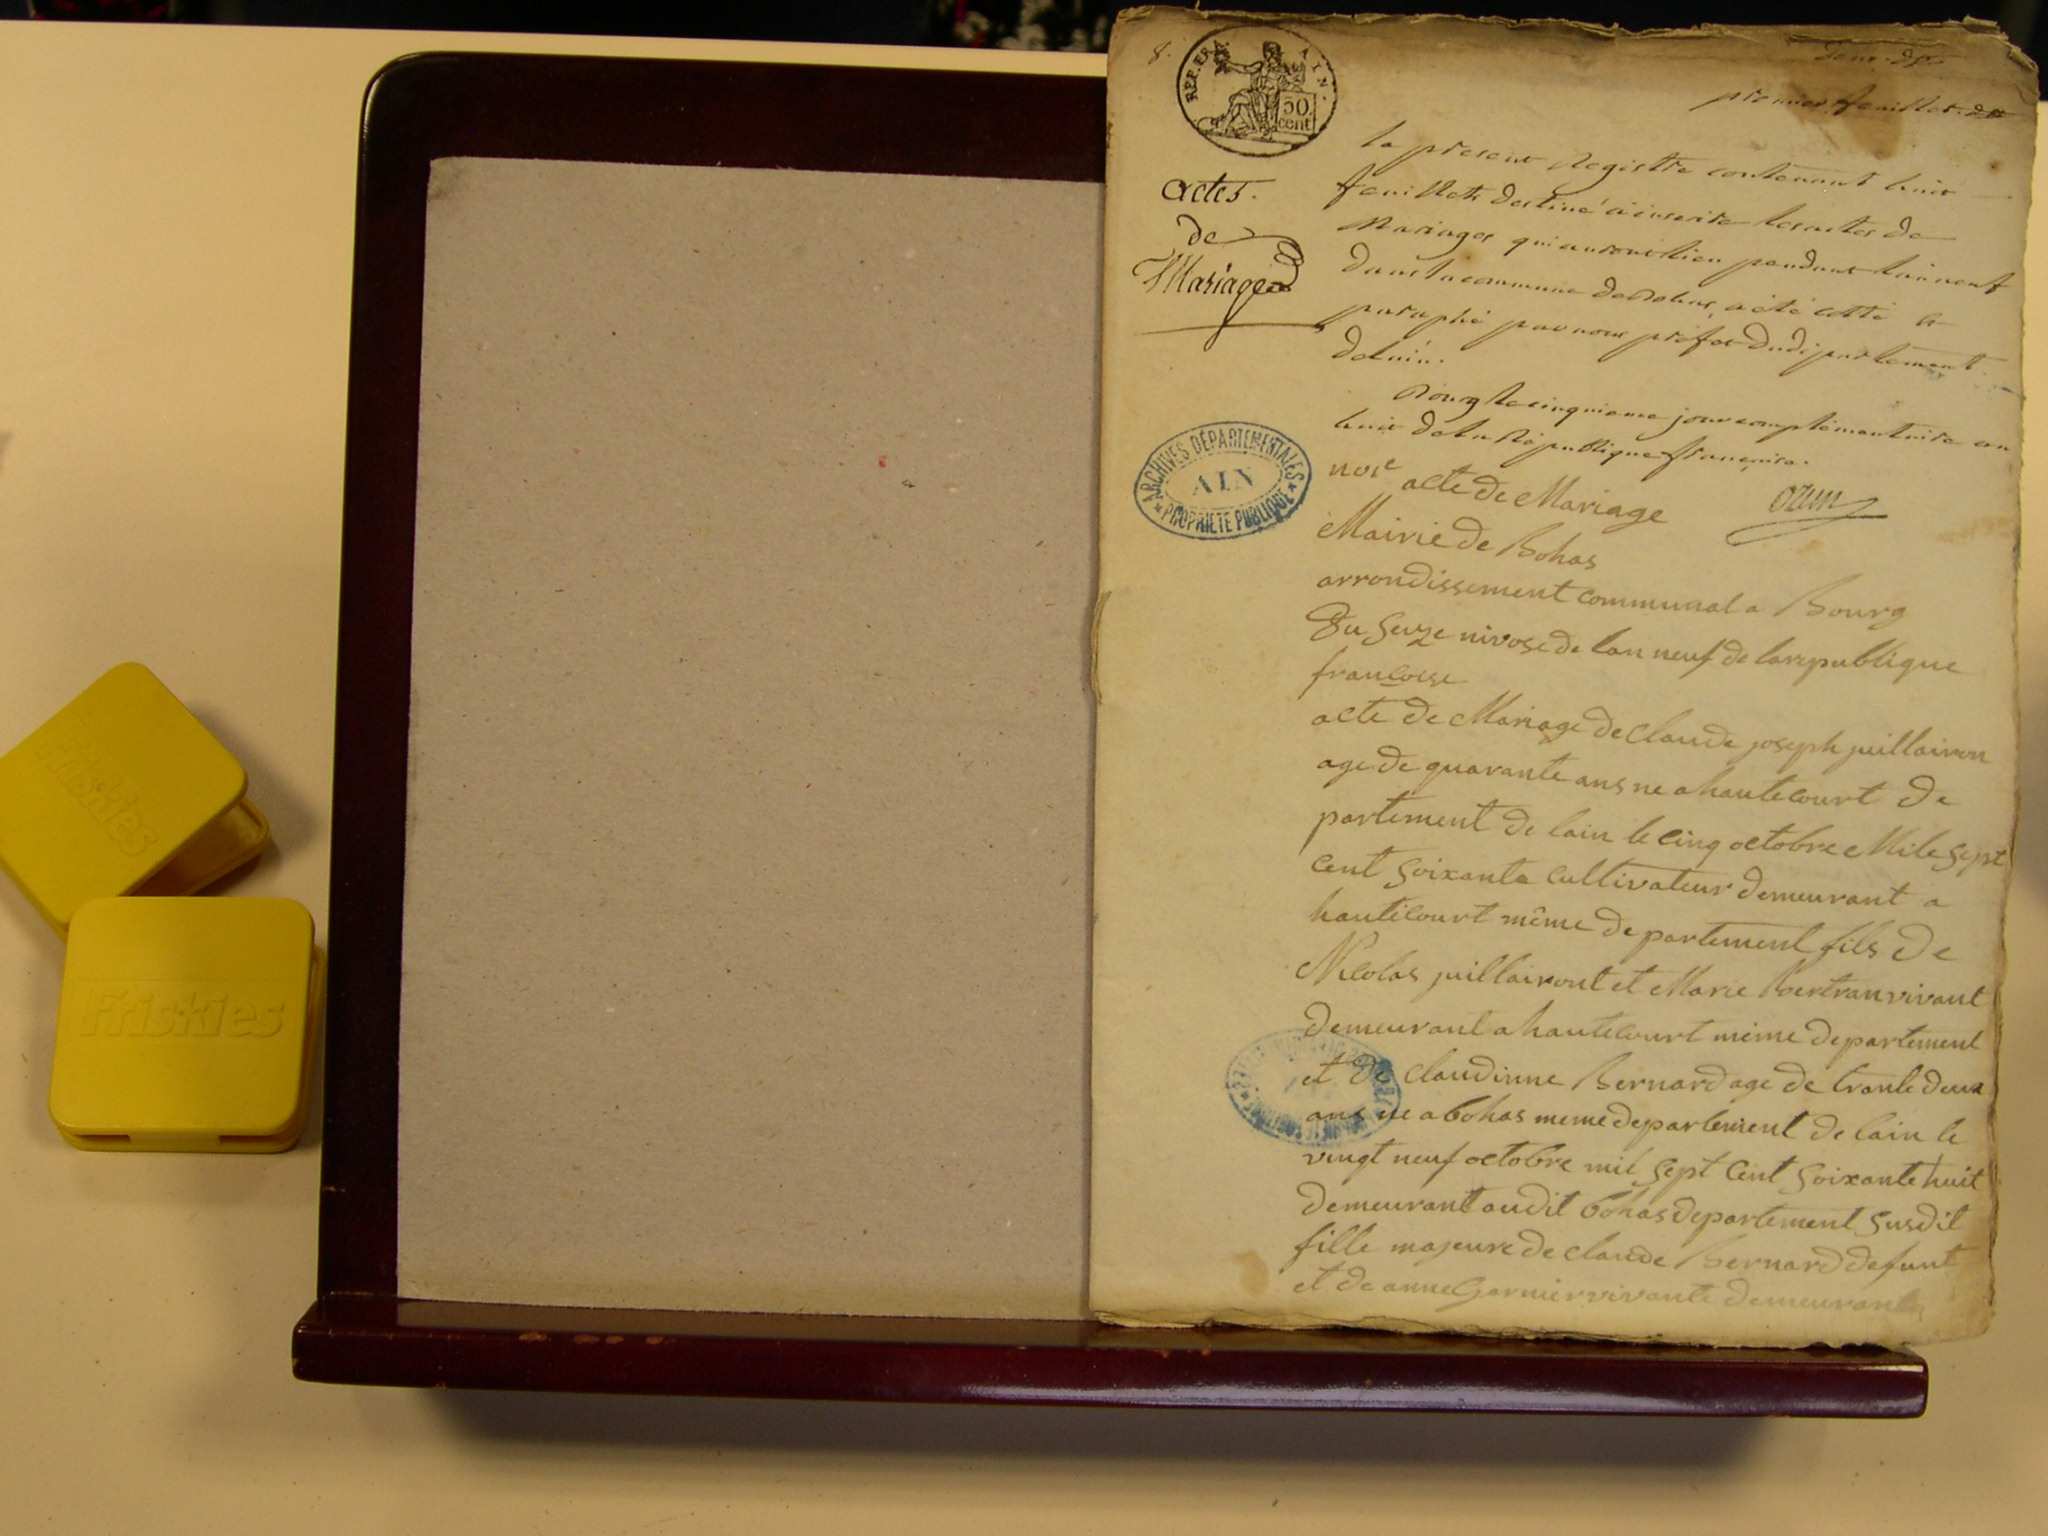 8.
REP. FRA
AIN.
50.
cent
premier feuillet
actes.
de
Mariage
le present Registre contenant huit
feuillets destiné a inscrire les actes de
Mariages qui auront lieu pendant l'an neuf
dans la commune de Bohas, a été cotté &
paraphé par nous préfet du département
de l'ain.
Bourg le cinquieme jour complémentaire an
huit de la République française.
ozun
ARCHIVES DÉPARTEMENTALES
AIN
PROPRIÉTÉ PUBLIQUE
nose acte de Mariage
Mairie de Bohas
arrondissement communal a Bourg
Du Seize nivose de lan neuf de la republique
francoise
acte de Mariage de claude joseph juillairon
age de quarante ans ne a hautecourt de
partement de lain le cinq octobre Mile Sept
Cent Soixante cultivateur demeurant a
hautecourt même departement fils de
Nicolas juillairont et Marie Bertran vivant
demeurant a hautecourt même departement
et de claudinne Bernard age de trante deux
ans ne a bohas meme departement de lain le
vingt neuf octobre mil Sept Cent Soixante huit
demeurant audit bohas departement Susdit
fille majeure de claude Bernard defunt
et de anne Garnier vivante demeurant
Friskies
Friskies